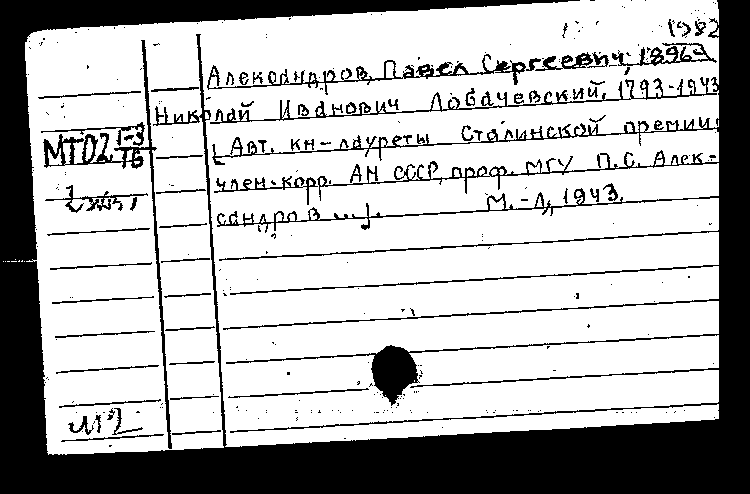 1982
Александров, Павел Сергеевич, 1896-
Николай Иванович Лобачевский, 1793-1943
[Авт. кн-лауреты Сталинской премии:
МТ02 1-3/16
член-корр. АН СССР, проф. МГУ П.С. Алек-
1
2 экз
сандров ...].   М.-Л., 1943.
М2